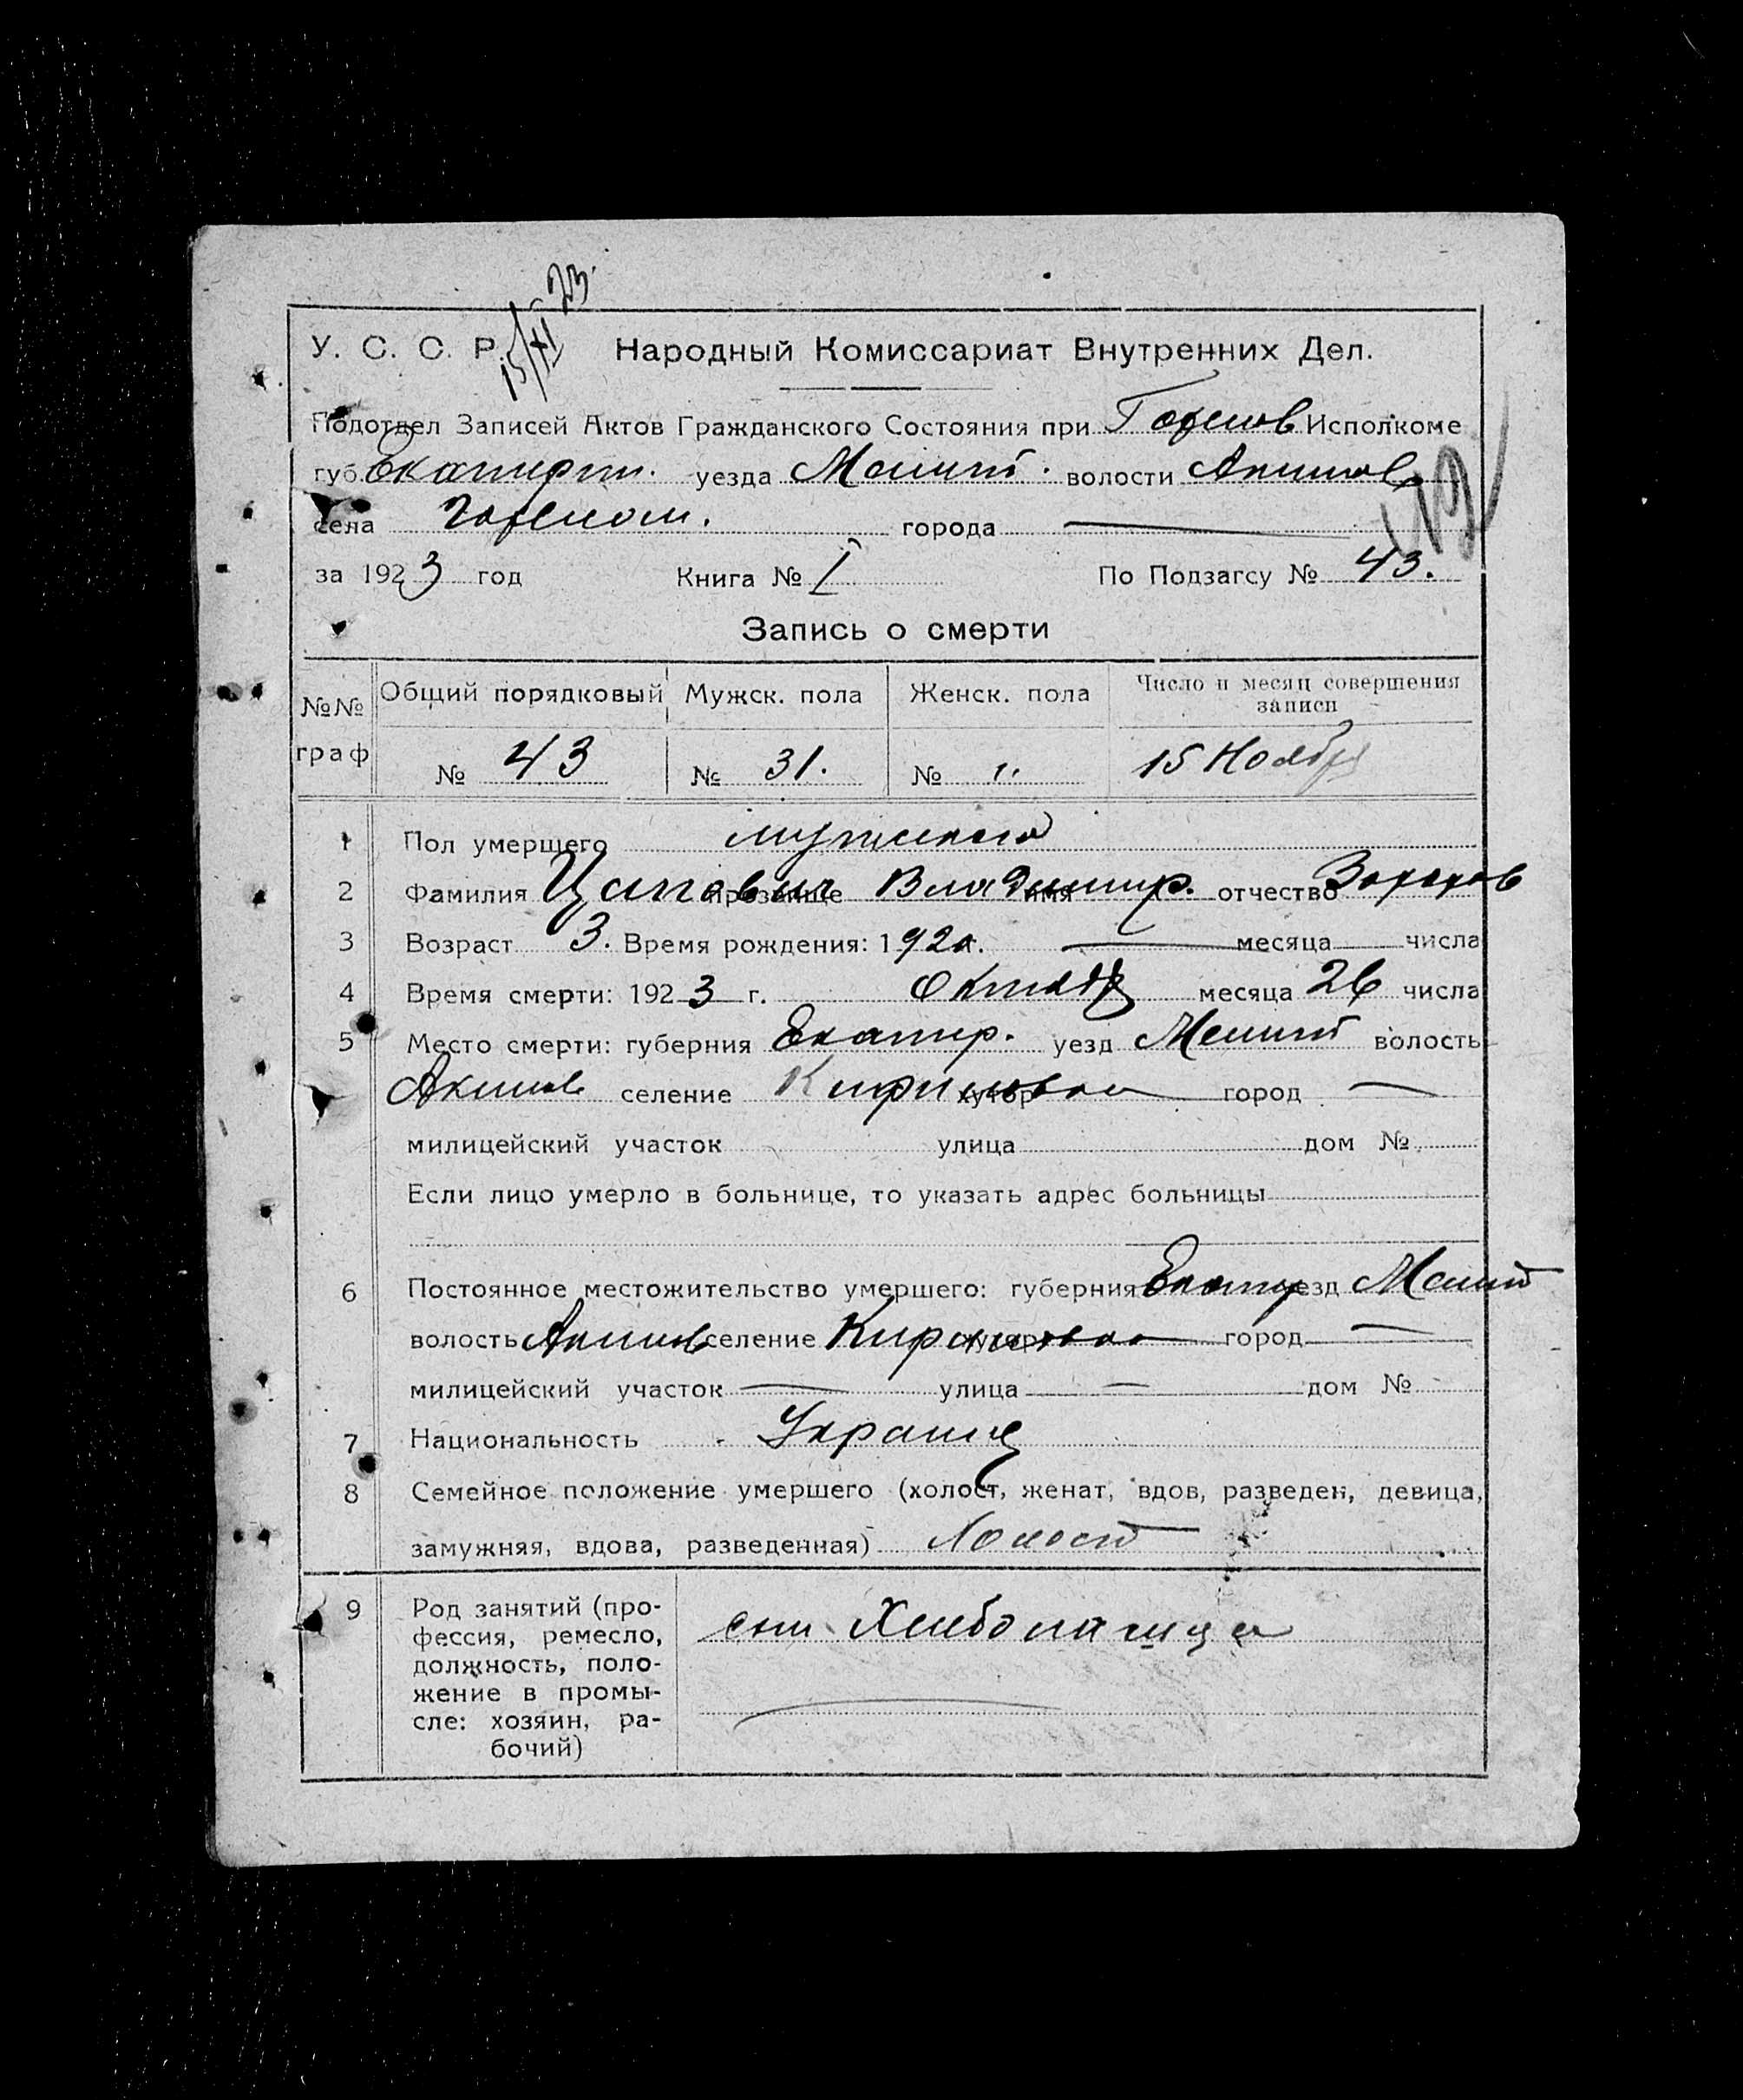 15/XI 23.
У. С. С. Р. Народный Комиссариат Внутренних Дел.
Подотдел Записей Актов Гражданского Состояния при Исполкоме
губ. уезда Мелит. волости Акимов
села города —
за 1923 год Книга № I По Подзагсу № 43.
Запись о смерти
№№ граф Общий порядковый Мужск. пола Женск. пола Число и месяц совершения записи
№ 43 № 31. № 15 Ноября
1 Пол умершего мужского
2 Фамилия прозвище Владимир. имя отчество Захаров
3 Возраст 3. Время рождения: 192 г. — месяца числа
4 Время смерти: 1923 г. Октябр месяца 26 числа
5 Место смерти: губерния Екатер. уезд Мелит волость
Акимов селение Кириловка хутор город —
милицейский участок улица дом №
Если лицо умерло в больнице, то указать адрес больницы
6 Постоянное местожительство умершего: губерния Екатер уезд Мелит
волость Акимов селение Кириловка хутор город —
милицейский участок — улица — дом №
7 Национальность Украинец
8 Семейное положение умершего (холост, женат, вдов, разведен, девица,
замужняя, вдова, разведенная) Холост
9 Род занятий (про-
фессия, ремесло,
должность, поло-
жение в промы-
сле: хозяин, ра-
бочий)
сын Хлебопашца